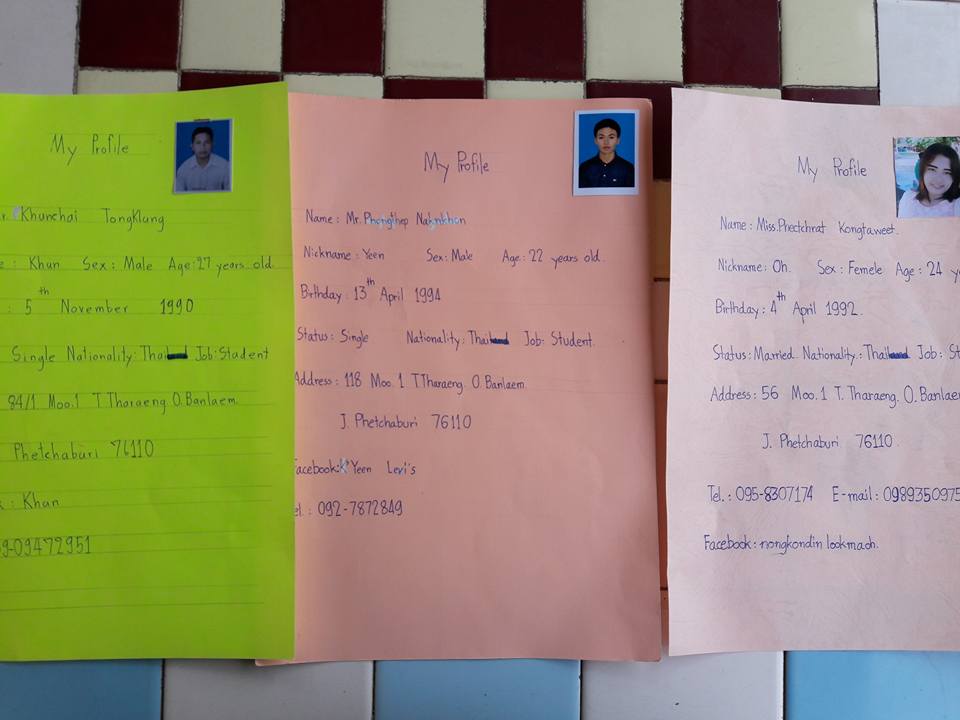 My Profile
r. Khunchai TongKlang
e : Khun Sex : Male Age:27 years old.
: 5th November 1990
Single Nationality: Thai Job: Student
84/1 Moo.1 T.Tharaeng. O.Banlaem.
Phetchaburi 76110
: Khan
9-09472951
My Profile
Name : Mr. Phongthep Nakynkhon
Nickname : Yeen Sex: Male Age : 22 years old.
Birthday : 13th April 1994
Status : Single Nationality: Thai Job: Student.
Address : 118 Moo.1 T.Tharaeng. O.Banlaem
J. Phetchaburi 76110
Facebook: Yeen Levi's
el. : 092-7872849
My Profile
Name : Miss.Phectchrat Kongtaweet.
Nickname: Oh. Sex: Femele Age : 24 ye
Birthday : 4th April 1992.
Status: Married Nationality.: Thai Job : St
Address : 56 Moo.1 T. Tharaeng. O.Banlae
J. Phetchaburi 76110.
Tel. : 095-8307174 E-mail : 0989350975
Facebook : nongkondin lookmaoh.